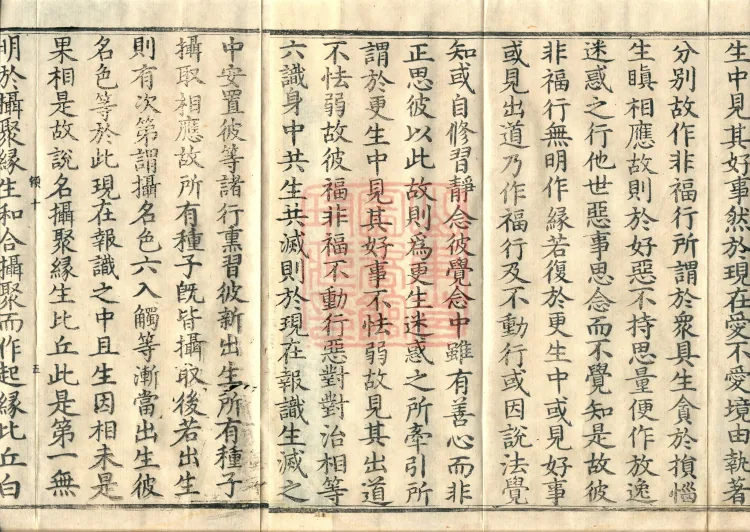 生中見其好事然於現在愛不愛境由執著
分別故作非福行所謂於衆具生貪於損惱
生瞋相應故則於好惡不持思量便作放逸
迷惑之行他世惡事思念而不覺知是故彼
非福行無明作緣若復於更生中或見好事
或見出道乃作福行及不動行或因說法覺
知或自修習靜念彼覺念中雖有善心而非
正思彼以此故則爲更生迷惑之所牽引所
謂於更生中見其好事不怯弱故見其出道
不怯弱故彼福非福不動行惡對對治相等
六識身中共生共滅則於現在報識生滅之
中安置彼等諸行熏習彼新出生所有種子
攝取相應故所有種子旣皆攝取後若出生
則有次第謂攝名色六入觸等漸當出生彼
名色等於此現在報識之中且生因相未是
果相是故說名攝聚緣生比丘此是第一無
領十 五
明於攝聚緣生和合攝聚而作起緣比丘白